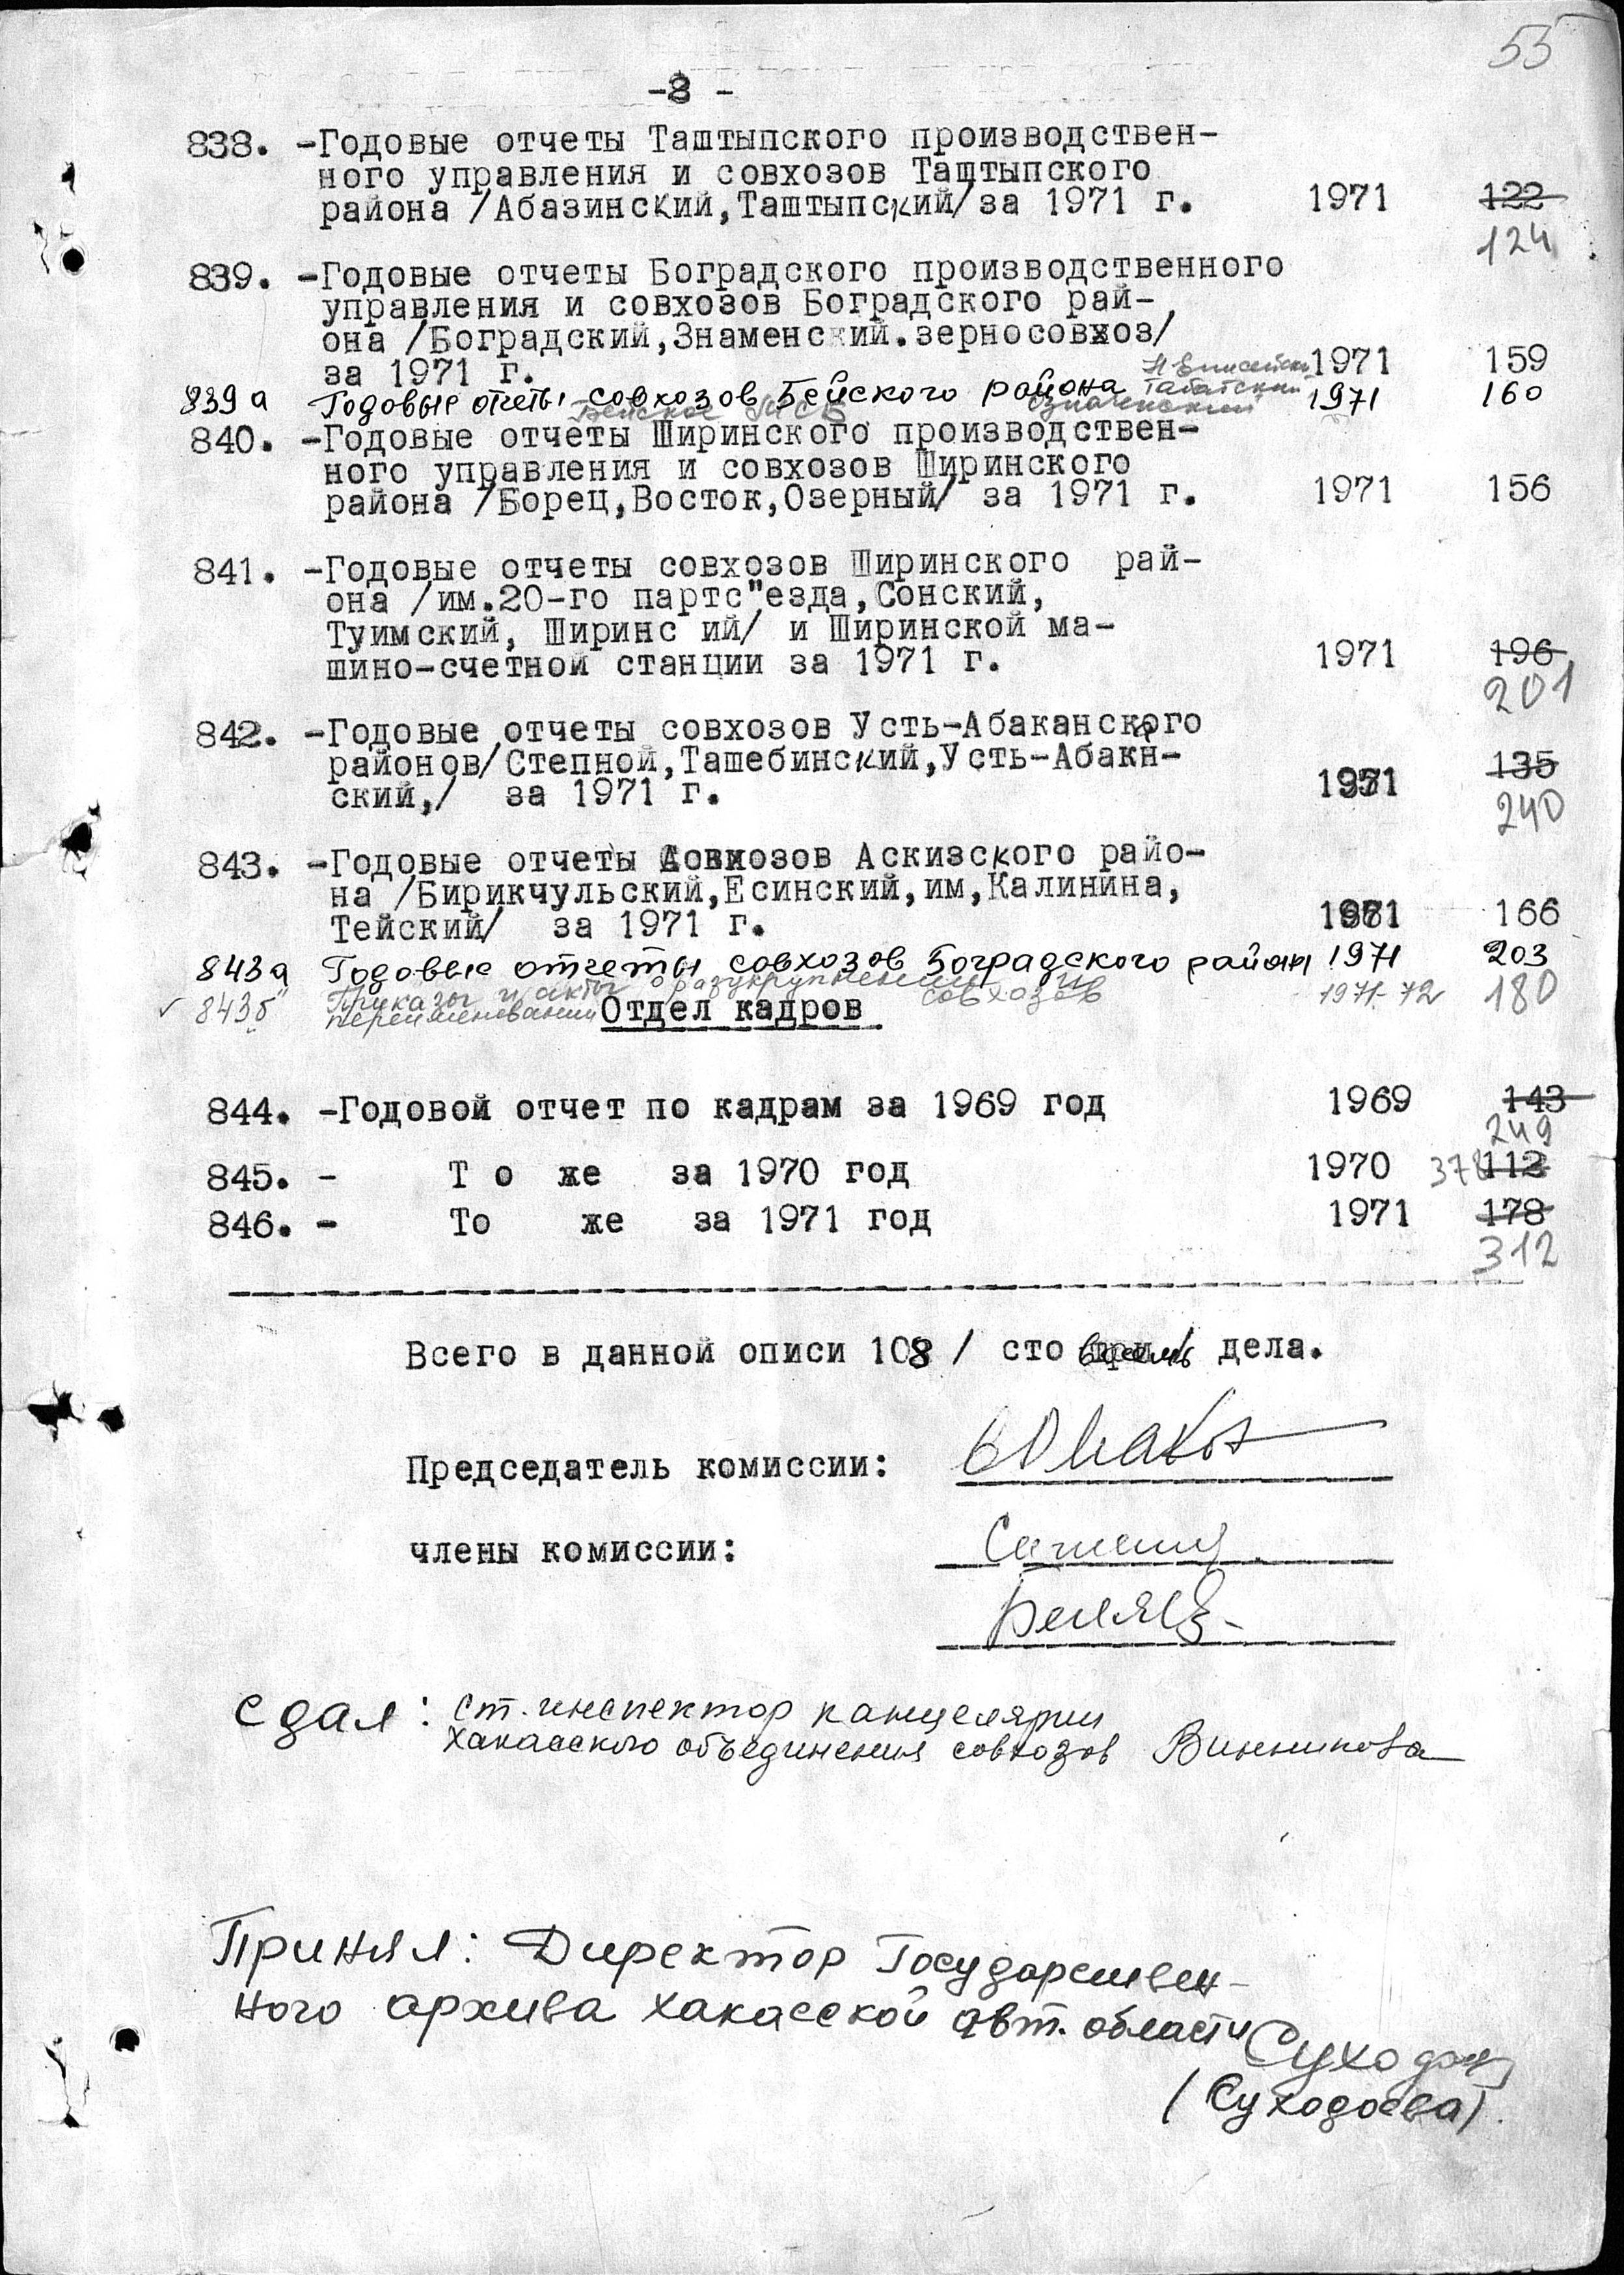 55
-8 -
838. -Годовые отчеты Таштыпского производствен-
ного управления и совхозов Таштыпского
района /Абазинский,Таштыпский/за 1971 г. 1971 122
124
839. -Годовые отчеты Боградского производственного
управления и совхозов Боградского рай-
она /Боградский,Знаменский.зерносовхоз/
за 1971 г. 1971 159
Н Енисейский
839а Годовые отчеты совхозов Бейского района Табатский 1971 160
Бейское МСС Означенский
840. -Годовые отчеты Ширинского производствен-
ного управления и совхозов Ширинского
района /Борец,Восток,Озерный/ за 1971 г. 1971 156
841. -Годовые отчеты совхозов Ширинского рай-
она /им.20-го партс"езда,Сонский,
Туимский, Ширинс ий/ и Ширинской ма-
шино-счетной станции за 1971 г. 1971 196
201
842. -Годовые отчеты совхозов Усть-Абаканского
районов/Степной,Ташебинский,Усть-Абакн-
ский,/ за 1971 г. 1971 135
240
843. -Годовые отчеты совхозов Аскизского райо-
на /Бирикчульский,Есинский,им,Калинина,
Тейский/ за 1971 г. 1971 166
843а Годовые отчеты совхозов Боградского района 1971 203
843б Приказы и акты о разукрупнении и 1971-72 180
переименовании совхозов
Отдел кадров
844. -Годовой отчет по кадрам за 1969 год 1969 143
249
845. - Т о же за 1970 год 1970 378 112
846. - То же за 1971 год 1971 178
312
Всего в данной описи 108 / сто восемь/ дела.
Председатель комиссии:
члены комиссии:
сдал: ст. инспектор канцелярии
Хакасского объединения совхозов Винникова
Принял: Директор Государствен-
ного архива Хакасской авт. области Суходо
(Суходоева)